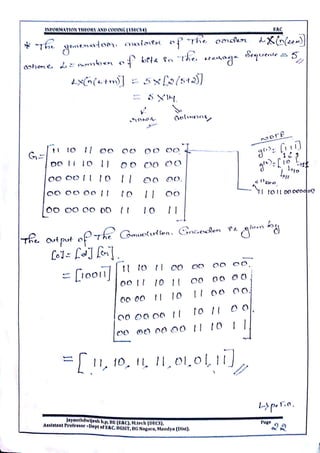 INFORMATION THEORY AND CODING (15EC54) E&C
* The generator matrix of the order L X (n(L+m))
where L = number of bits in the message sequence = 5
LX(n(L+m)] = 5 X [2(5+2)]
= 5 X 14
rows columns
NOTE
G = [11 10 11 00 00 00 00
00 11 10 11 00 00 00
00 00 11 10 11 00 00
00 00 00 11 10 11 00
00 00 00 00 11 10 11]
11 10 11 00 00 00 00
The output of The Convolution Encoder is given by
[c] = [d] [G]
= [10011] [11 10 11 00 00 00 00
00 11 10 11 00 00 00
00 00 11 10 11 00
00 00 00 11 10 11 00
00 00 00 00 11 10 11]
= [11, 10, 11, 11, 01, 01, 11]
Page 22
Assistant Professor - Dept of E&C, BGSIT, BG Nagara, Mandya (Dist).